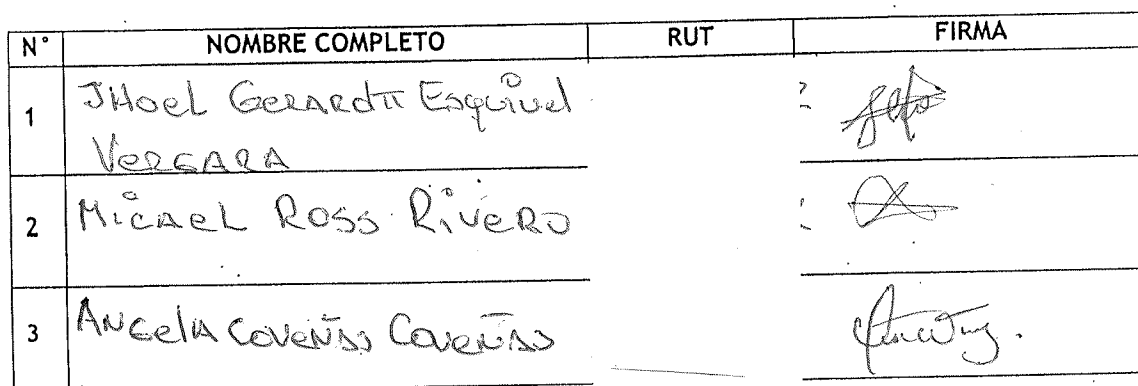 N° NOMBRE COMPLETO RUT FIRMA
1 JHoel Gerardo Esquivel
Vergara
2 Micael Ross Rivero
3 Angela Coveñas Coveñas